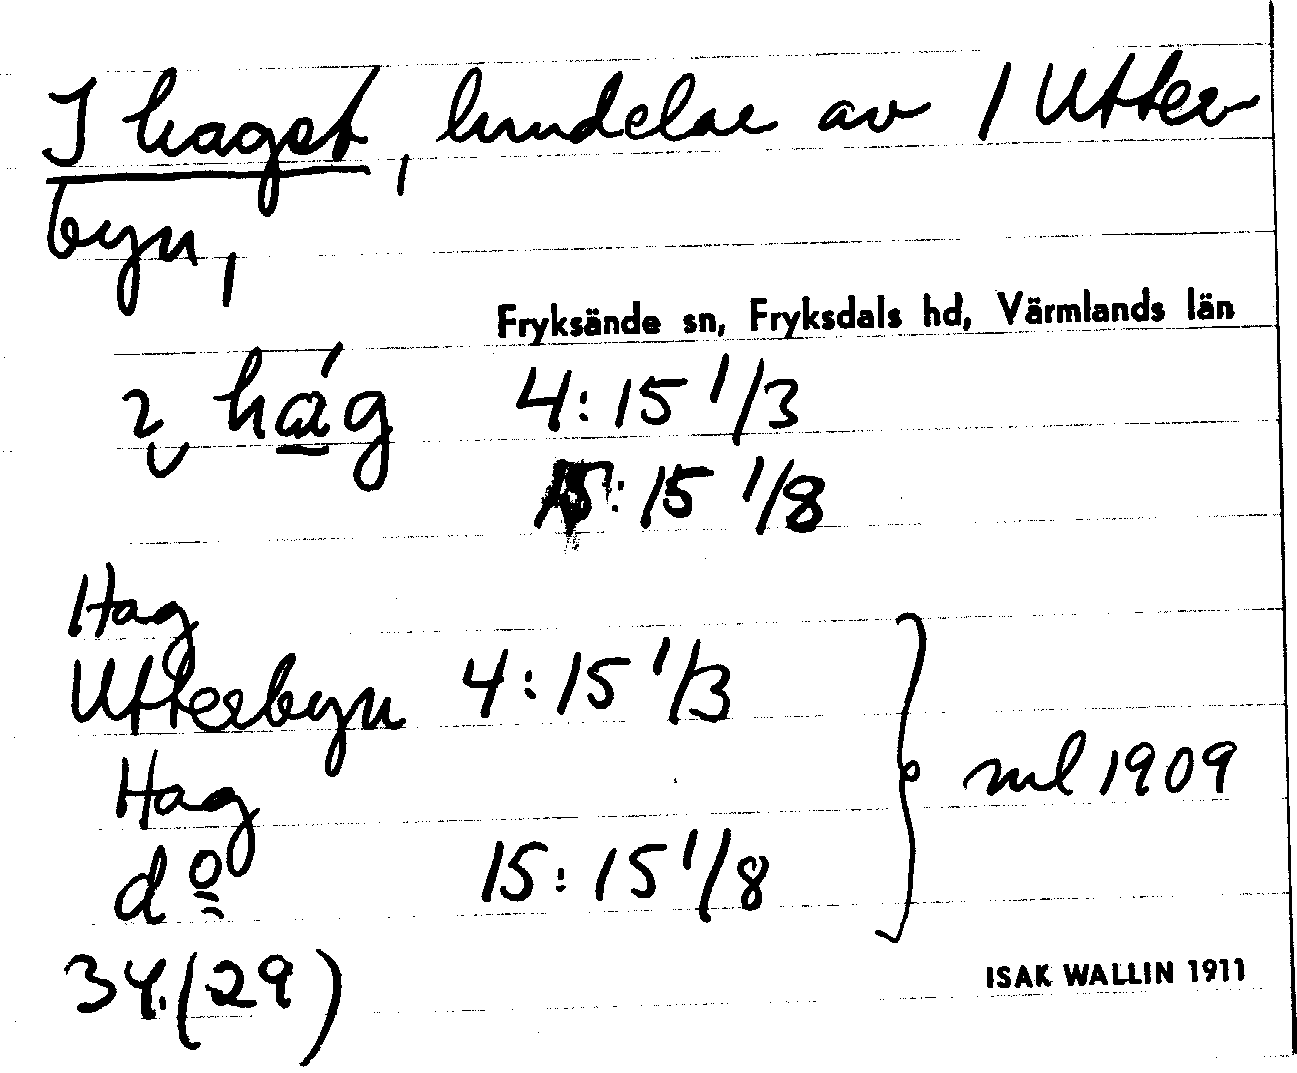 I hagst, lmdelar av 1 Utter
byn,
Fryksände sn, Fryksdals hd, Värmlands län
ɩ hág 4:15 1/3
15:15 1/8
Hag
Utterbyn 4:15 1/3
Hag
do 15:15 1/8
ml 1909
34.(29)
ISAK WALLIN 1911